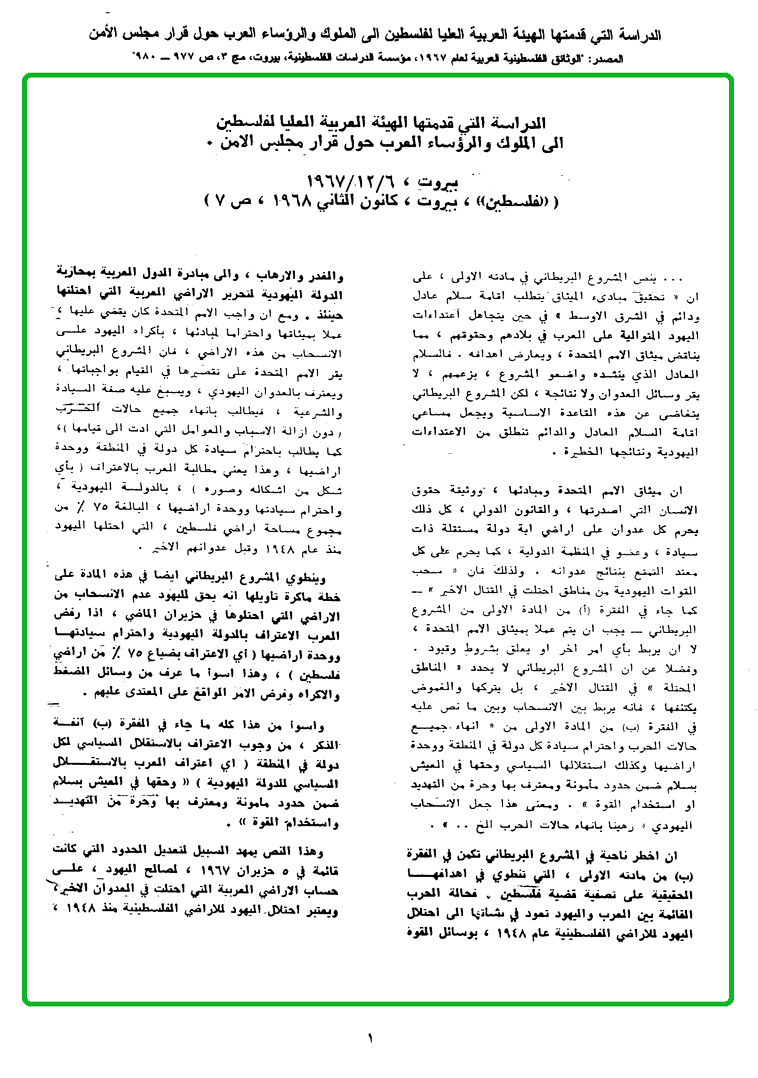 الدراسة التي قدمتها الهيئة العربية العليا لفلسطين الى الملوك والرؤساء العرب حول قرار مجلس الأمن
المصدر: "الوثائق الفلسطينية العربية لعام ١٩٦٧، مؤسسة الدراسات الفلسطينية، بيروت، مج ٣، ص ٩٧٧ ــ ٩٨٠"
الدراسة التي قدمتها الهيئة العربية العليا لفلسطين
الى الملوك والرؤساء العرب حول قرار مجلس الامن .
بيروت ، ١٩٦٧/١٢/٦
( «فلسطين» ، بيروت ، كانون الثاني ١٩٦٨ ، ص ٧ )
... ينص المشروع البريطاني في مادته الاولى ، على
ان « تحقيق مبادىء الميثاق يتطلب اقامة سلام عادل
ودائم في الشرق الاوسط » في حين يتجاهل أعتداءات
اليهود المتوالية على العرب في بلادهم وحقوقهم ، مما
يناقض ميثاق الامم المتحدة ، ويعارض اهدافه . فالسلام
العادل الذي ينشده واضعو المشروع ، بزعمهم ، لا
يقر وسائل العدوان ولا نتائجة ، لكن المشروع البريطاني
يتغاضى عن هذه القاعدة الاساسية ويجعل مساعي
اقامة السلام العادل والدائم تنطلق من الاعتداءات
اليهودية ونتائجها الخطيرة .
ان ميثاق الامم المتحدة ومبادئها ، ووثيقة حقوق
الانسان التي اصدرتها ، والقانون الدولي ، كل ذلك
يحرم كل عدوان على اراضي اية دولة مستقلة ذات
سيادة ، وعضو في المنظمة الدولية ، كما يحرم على كل
معتد التمتع بنتائج عدوانه . ولذلك فان « سحب
القوات اليهودية من مناطق احتلت في القتال الاخير » ــ
كما جاء في الفقرة (أ) من المادة الاولى من المشروع
البريطاني ــ يجب ان يتم عملا بميثاق الامم المتحدة ،
لا ان يربط بأي امر اخر او يعلق بشروط وقيود .
وفضلا عن ان المشروع البريطاني لا يحدد « المناطق
المحتلة » في القتال الاخير ، بل يتركها والغموض
يكتنفها ، فانه يربط بين الانسحاب وبين ما نص عليه
في الفقرة (ب) من المادة الاولى من « انهاء جميع
حالات الحرب واحترام سيادة كل دولة في المنطقة ووحدة
اراضيها وكذلك استقلالها السياسي وحقها في العيش
بسلام ضمن حدود مأمونة ومعترف بها وحرة من التهديد
او استخدام القوة » . ومعنى هذا جعل الانسحاب
اليهودي « رهينا بانهاء حالات الحرب الخ .. » .
ان اخطر ناحية في المشروع البريطاني تكمن في الفقرة
(ب) من مادته الاولى ، التي تنطوي في اهدافهـا
الحقيقية على تصفية قضية فلسطين . فحالة الحرب
القائمة بين العرب واليهود تعود في نشأتها الى احتلال
اليهود للاراضي الفلسطينية عام ١٩٤٨ ، بوسائل القوة
والغدر والارهاب ، والى مبادرة الدول العربية بمحاربة
الدولة اليهودية لتحرير الاراضي العربية التي احتلتها
حينئذ . ومع ان واجب الامم المتحدة كان يقضي عليها ،
عملا بميثاقها واحتراما لمبادئها ، بأكراه اليهود علـى
الانسحاب من هذه الاراضي ، فان المشروع البريطاني
يقر الامم المتحدة على تقصيرها في القيام بواجباتها ،
ويعترف بالعدوان اليهودي ، ويسبغ عليه صفة السيادة
والشرعية ، فيطالب بانهاء جميع حالات الحـرب
( دون ازالة الاسباب والعوامل التي ادت الى قيامها )،
كما يطالب باحترام سيادة كل دولة في المنطقة ووحدة
اراضيها ، وهذا يعني مطالبة العرب بالاعتراف ( بأي
شكل من اشكاله وصوره ) ، بالدولـة اليهودية ،
واحترام سيادتها ووحدة اراضيها ، البالغة ٧٥ ٪ من
مجموع مساحة اراضي فلسطين ، التي احتلها اليهود
منذ عام ١٩٤٨ وقبل عدوانهم الاخير .
وينطوي المشروع البريطاني ايضا في هذه المادة على
خطة ماكرة تاويلها انه يحق لليهود عدم الانسحاب من
الاراضي التي احتلوها في حزيران الماضي ، اذا رفض
العرب الاعتراف بالدولة اليهودية واحترام سيادتهـا
ووحدة اراضيها ( أي الاعتراف بضياع ٧٥ ٪ من اراضي
فلسطين ) ، وهذا اسوأ ما عرف من وسائل الضغط
والاكراه وفرض الامر الواقع على المعتدى عليهم .
واسوأ من هذا كله ما جاء في الفقرة (ب) آنفـة
الذكر ، من وجوب الاعتراف بالاستقلال السياسي لكل
دولة في المنطقة ( اي اعتراف العرب بالاستقـــلال
السياسي للدولة اليهودية ) «وحقها في العيش بسلام
ضمن حدود مامونة ومعترف بها وحرة من التهديـد
واستخدام القوة » .
وهذا النص يمهد السبيل لتعديل الحدود التي كانت
قائمة في ٥ حزيران ١٩٦٧ ، لصالح اليهود ، علـى
حساب الاراضي العربية التي احتلت في العدوان الاخير،
ويعتبر احتلال اليهود للاراضي الفلسطينية منذ ١٩٤٨ ،
١